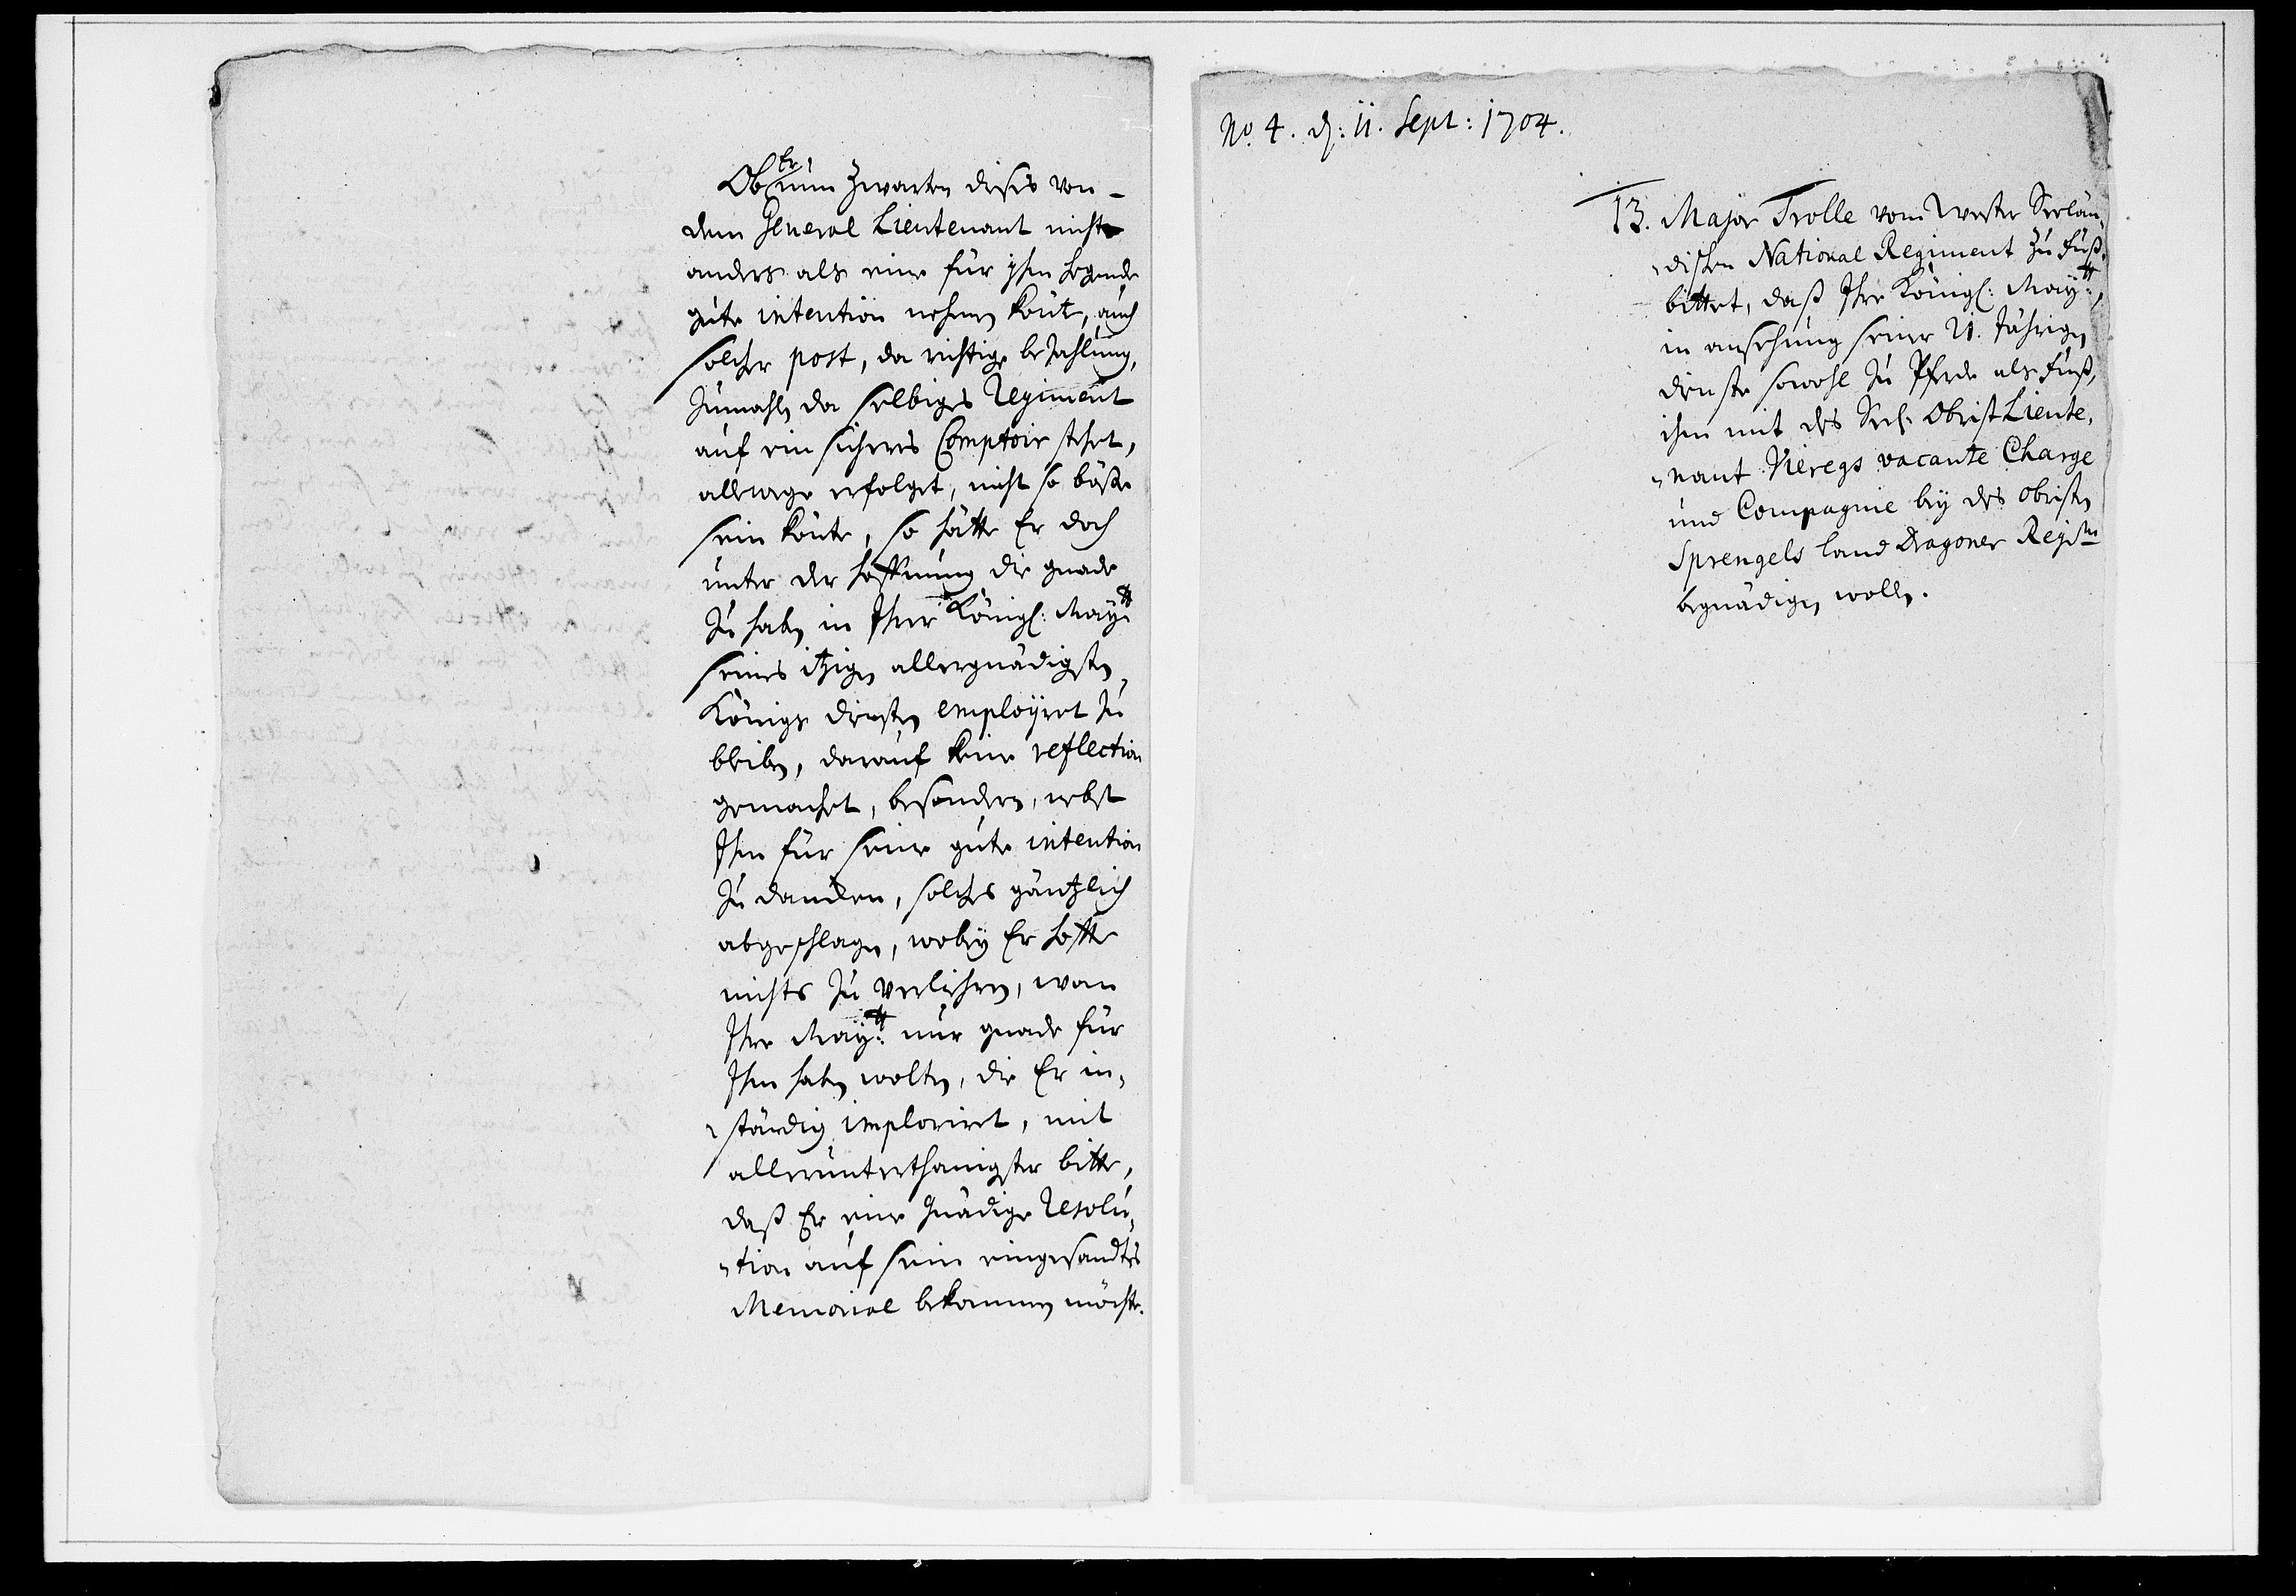 Ob Er nun zwarten dises von-
dem General Lieutenant nicht
anders als eine für ihm hegende
gute intention nehmen könte, auch
solcher post, da richtige bezahlung,
zumahlen da selbiges Regiment
auf ein sicheres Comptoir stehet,
allewege erfolget, nicht so böße
sein könte, so hätte Er doch
unter der hoffnung die gnade
zu haben in Ihrer Königl: Maytt:
seines itzigen allergnädigsten
Königs diensten employret zu
bleiben, darauf keine reflection
gemachet, besondern, nebst
Ihm für seine gute intention
zu dancken, solches gäntzlich
abgeschlagen, wobey Er hoffte
nichts zu verliehren, wan
Ihre Maytt: nur gnade für
Ihm haben wolten, die Er in-
ständig imploriret, mit
allerunterthänigster bitte,
daß Er eine gnädige Resolu-
tion auf sein eingesandtes
Memorial bekommen möchte.
No. 4. d: 11. Sept: 1704.
13. Major Trolle vom Wester Seelän-
dischen National Regiment zu Fuß.
bittet, daß Ihre Königl: Maytt:,
in ansehung seiner 21. Jährigen
dienste sowohl zu Pferde als Fuß,
ihm mit des Seel: Obrist Lieute-
nant Vieregs vacante Charge
und Compagnie bey des Obristen
Sprengels land Dragoner Regim
begnädigen wollen.